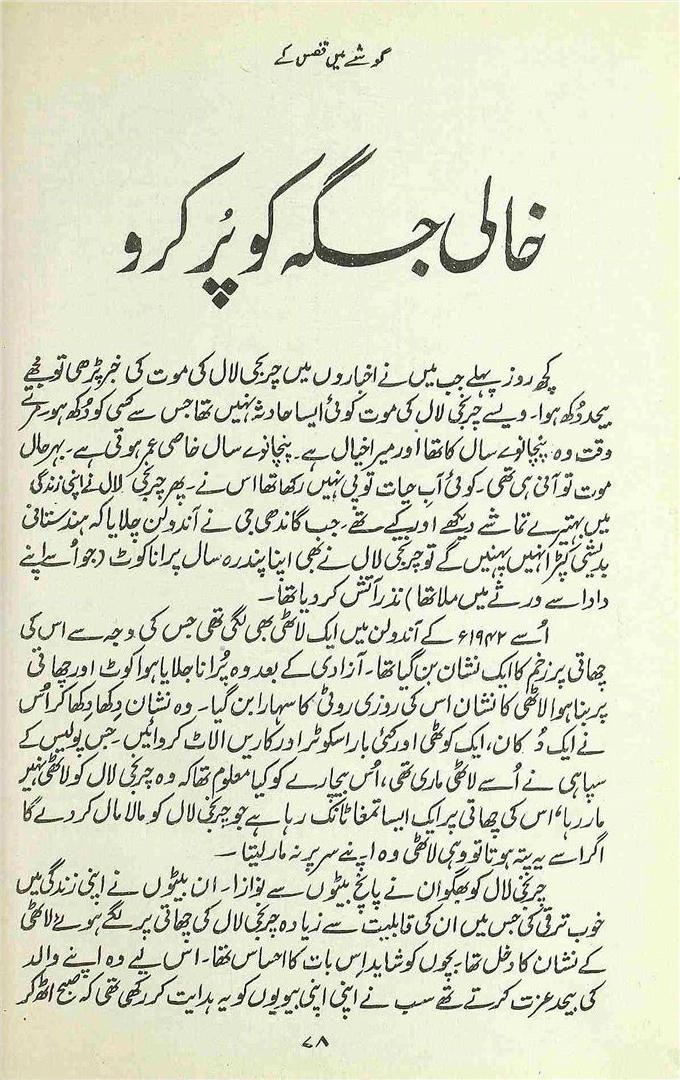 گوشے میں قفس کے
خالی جگہ کو پُر کرو
کچھ روز پہلے جب میں نے اخباروں میں چرنجی لال کی موت کی خبر پڑھی تو مجھے
بیحد دُکھ ہوا۔ ویسے چرنجی لال کی موت کوئی ایسا حادثہ نہیں تھا جس سے کسی کو دُکھ ہو۔ مرتے
وقت وہ پنچانوے سال کا تھا اور میرا خیال ہے۔ پنچانوے سال خاصی عمر ہوتی ہے۔ بہرحال
موت تو آنی ہی تھی۔ کوئی آبِ حیات تو پی نہیں رکھا تھا اس نے۔ پھر چرنجی لال نے اپنی زندگی
میں بہتیرے تماشے دیکھے اور کیے تھے۔ جب گاندھی جی نے آندولن چلایا کہ ہندستانی
بدیشی کپڑا نہیں پہنیں گے تو چرنجی لال نے بھی اپنا پندرہ سال پرانا کوٹ (جو اُسے اپنے
دادا سے ورثے میں ملا تھا) نذر آتش کر دیا تھا۔
اُسے ۱۹۴۲ء کے آندولن میں ایک لاٹھی بھی لگی تھی جس کی وجہ سے اس کی
چھاتی پر زخم کا ایک نشان بن گیا تھا۔ آزادی کے بعد وہ پُرانا جلایا ہوا کوٹ اور چھاتی
پر بنا ہوا لاٹھی کا نشان اس کی روزی روٹی کا سہارا بن گیا۔ وہ نشان دِکھا دِکھا کر اُس
نے ایک دُکان، ایک کوٹھی اور کئی بار اسکوٹر اور کاریں الاٹ کروائیں۔ جس پولیس کے
سپاہی نے اُسے لاٹھی ماری تھی، اُس بیچارے کو کیا معلوم تھا کہ وہ چرنجی لال کو لاٹھی نہیں
مار رہا، اس کی چھاتی پر ایک ایسا تمغا ٹانک رہا ہے جو چرنجی لال کو مالا مال کر دے گا
اگر اسے یہ پتہ ہوتا تو وہی لاٹھی وہ اپنے سر پر نہ مار لیتا۔
چرنجی لال کو بھگوان نے پانچ بیٹوں سے نوازا۔ ان بیٹوں نے اپنی زندگی میں
خوب ترقی کی جس میں ان کی قابلیت سے زیادہ چرنجی لال کی چھاتی پر لگے ہوئے لاٹھی
کے نشان کا دخل تھا۔ بچوں کو شاید اِس بات کا احساس تھا۔ اس لیے وہ اپنے والد
کی بیحد عزت کرتے تھے سب نے اپنی اپنی بیویوں کو یہ ہدایت کر رکھی تھی کہ صبح اٹھ کر
۷۸